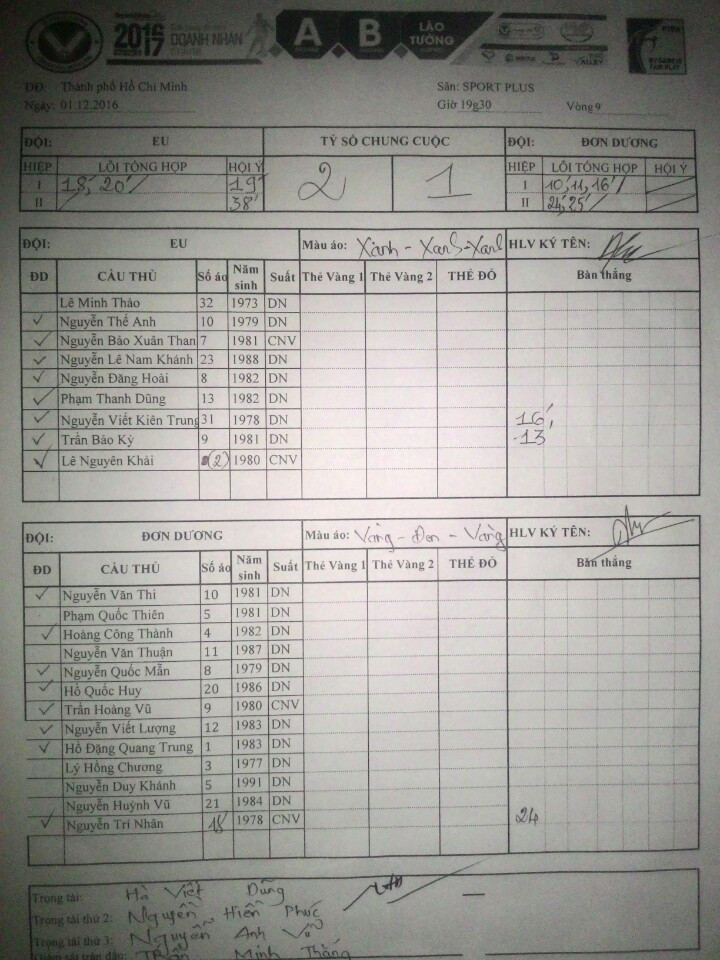 2016
2017
DOANH NHÂN
A
B
LÃO
TƯỚNG
FIFA
MY GAME IS
FAIR PLAY
DĐ: Thành phố Hồ Chí Minh Sân: SPORT PLUS
Ngày: 01.12.2016 Giờ 19g30 Vòng 9
ĐỘI: EU TỶ SỐ CHUNG CUỘC ĐỘI: ĐƠN DƯƠNG
HIỆP LỖI TỔNG HỢP HỘI Ý 2 1 HIỆP LỖI TỔNG HỢP HỘI Ý
I 18', 20' 19' I 10', 11, 16'
II 38' II 24', 25'
ĐỘI: EU Màu áo: Xanh - Xanh - Xanh HLV KÝ TÊN:
ĐD CẦU THỦ Số áo Năm sinh Suất Thẻ Vàng 1 Thẻ Vàng 2 THẺ ĐỎ Bàn thắng
Lê Minh Thảo 32 1973 DN
✓ Nguyễn Thế Anh 10 1979 DN
✓ Nguyễn Bảo Xuân Than 7 1981 CNV
✓ Nguyễn Lê Nam Khánh 23 1988 DN
✓ Nguyễn Đăng Hoài 8 1982 DN
✓ Phạm Thanh Dũng 13 1982 DN
✓ Nguyễn Viết Kiên Trung 31 1978 DN 16'
✓ Trần Bảo Kỳ 9 1981 DN 13
✓ Lê Nguyên Khải (2) 1980 CNV
ĐỘI: ĐƠN DƯƠNG Màu áo: Vàng - Đen - Vàng HLV KÝ TÊN:
ĐD CẦU THỦ Số áo Năm sinh Suất Thẻ Vàng 1 Thẻ Vàng 2 THẺ ĐỎ Bàn thắng
✓ Nguyễn Văn Thi 10 1981 DN
Phạm Quốc Thiên 5 1981 DN
✓ Hoàng Công Thành 4 1982 DN
Nguyễn Văn Thuận 11 1987 DN
✓ Nguyễn Quốc Mẫn 8 1979 DN
✓ Hồ Quốc Huy 20 1986 DN
✓ Trần Hoàng Vũ 9 1980 CNV
✓ Nguyễn Viết Lượng 12 1983 DN
✓ Hồ Đặng Quang Trung 1 1983 DN
Lý Hồng Chương 3 1977 DN
Nguyễn Duy Khánh 5 1991 DN
Nguyễn Huỳnh Vũ 21 1984 DN
✓ Nguyễn Trí Nhân 18 1978 CNV 24
Trọng tài: Hồ Viết Dũng
Trọng tài thứ 2: Nguyễn Hiền Phúc
Trọng tài thứ 3: Nguyễn Anh Vũ
Giám sát trận đấu: Trần Minh Thắng